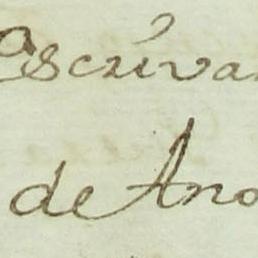 Escriva
de Ano